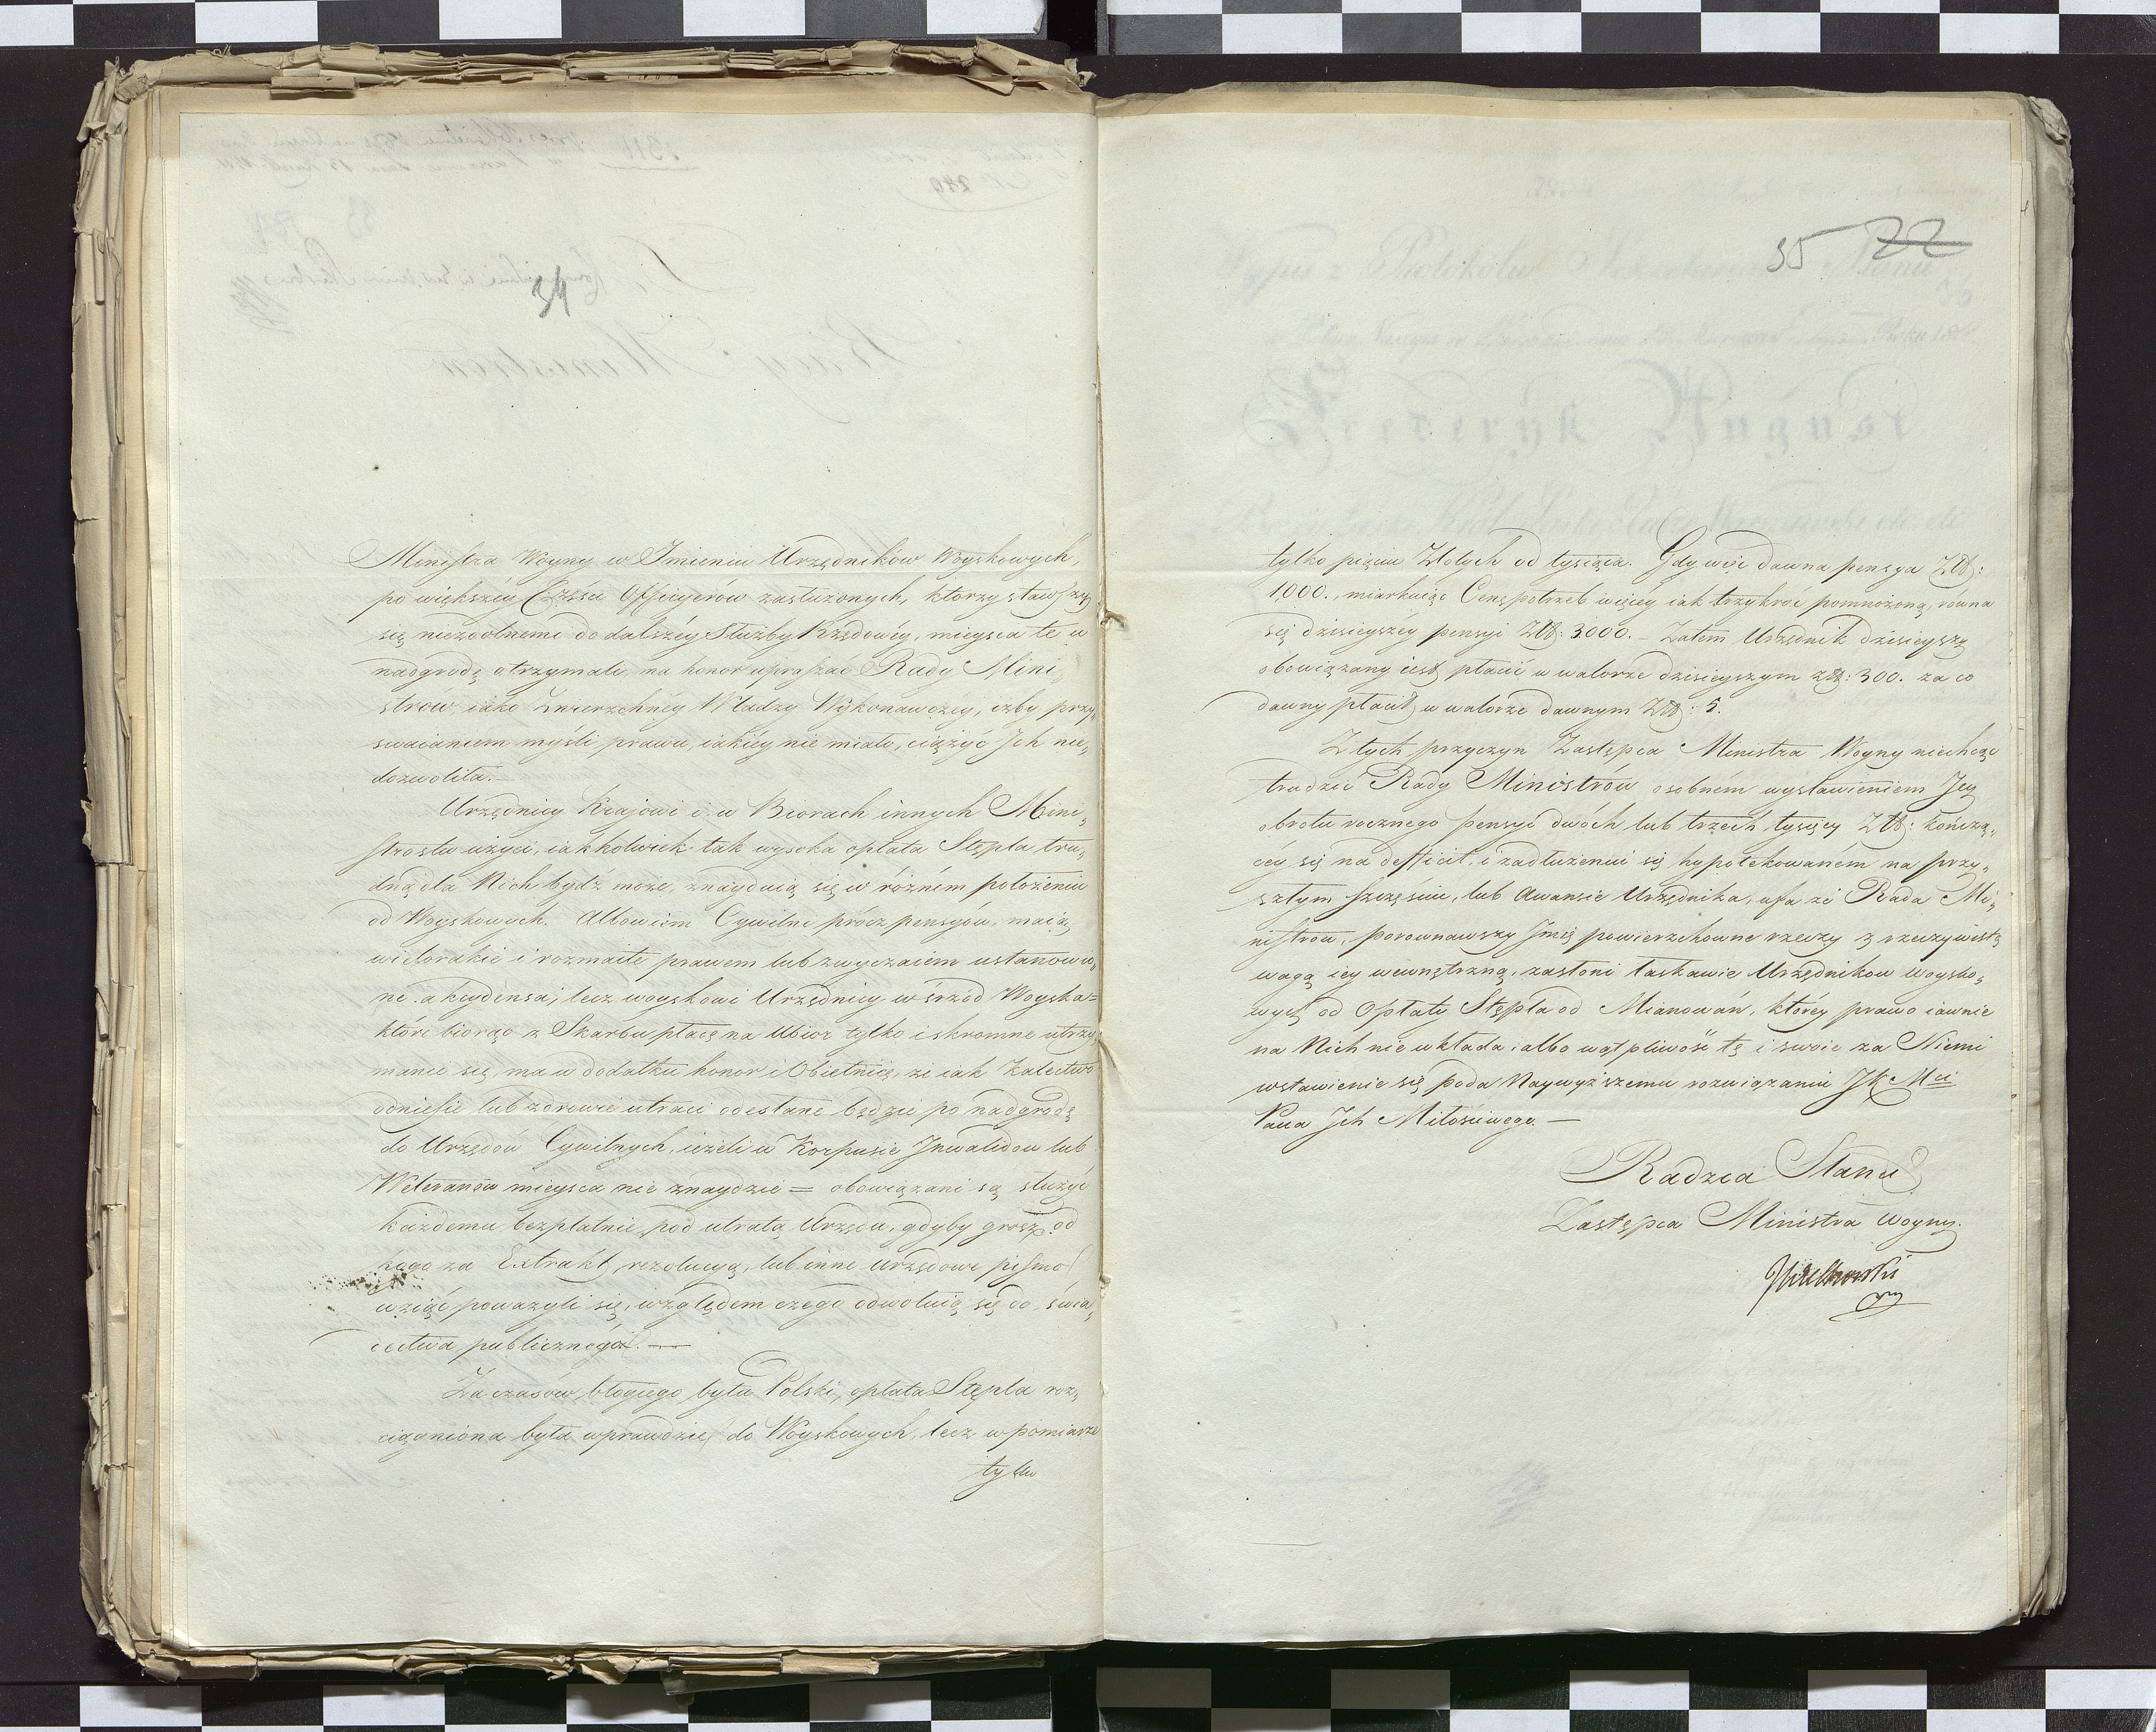 34
Ministra Woyny w Imieniu Urzędników Woyskowych,
po większéy Części Officyerów zasłużonych, którzy stawszy
się niezdolnemi do dalszéy Służby Rzędowéy, mieysca te w
nadgrodę otrzymali, ma honor upraszać Rady Mini„
strów, iako Zwierzchnéy Władzy Wykonawczey, iżby przy„
swaianiem myśli prawu, iakiéy nie miało, ciążyć Ich nie„
dozwoliła.—
Urzędnicy Krajowi i w Biorach innych Mini„
strostw użyci, iakkolwiek tak wysoka opłata Stępla tru„
dną dla Nich bydź może, znayduią się w różném położeniu
od Woyskowych. Albowiem Cywilni prócz pensyów, maią
wielorakie i rozmaite prawem lub zwyczaiem ustanowio„
ne akcydensa; lecz woyskowi Urzędnicy w śrzód Woyska=
które biorąc z Skarbu płacę na Ubior tylko i skromne utrzy„
manie się, ma w dodatku honor i Obietnicę, że iak Kalectwo
odniesie lub zdrowie utraci odesłane będzie po nadgrodę
do Urzędów Cywilnych, ieżeli w Korpusie Inwalidow lub
Weteranów mieysca nie znaydzie = obowiązani są służyć
każdemu bezpłatnie, pod utratą Urzędu, gdyby grosz od
kogo za Extrakt, rezolucyą, lub inne urzędowe pismo
wziąść poważyli się, względem czego odwołuią się do świa„
dectwa publicznego.—
Za czasów błogiego bytu Polski, opłata Stępla roz„
ciągniona była wprawdzie do Woyskowych, lecz w pomiarze
tylko
35 22
tylko pięciu Złotych od tysiąca. Gdy więc dawna pensya Zł:
1,000., miarkuiąc Cenę potrzeb więcéy iak trzykroć pomnożoną, równa
się dzisieyszéy pensyi Zł: 3000.— Zatem Urzędnik dzisieyszy
obowiązany iest płacić w walorze dzisieyszym zł: 300. za co
dawny płacił w walorze dawnym Zł: 5.
Z tych przyczyn Zastępca Ministra Woyny niechcąc
trudzić Rady Ministrów osobném wystawieniem Jey
obrotu rocznego pensyi dwóch lub trzech tysięcy Zł: kończą„
céy się na defficit, i zadłużeniu się hypotekowaném na przy„
szłym szczęściu, lub Awansie Urzędnika, ufa że Rada Mi„
nistrów, porownawszy Imię powierzchowne rzeczy z rzeczywistą
wagą iéy wewnętrzną, zasłoni łaskawie Urzędników Woysko„
wych od Opłaty Stępla od Mianowań, któréy prawo iawnie
na Nich nie wkłada; albo wątpliwość tę i swoie za Niemi
wstawienie się poda Naywyższemu rozwiązaniu JK Mci
Pana Ich Miłościwego.—
Radzca Stanu
Zastępca Ministra Woyny.
Wielhorski